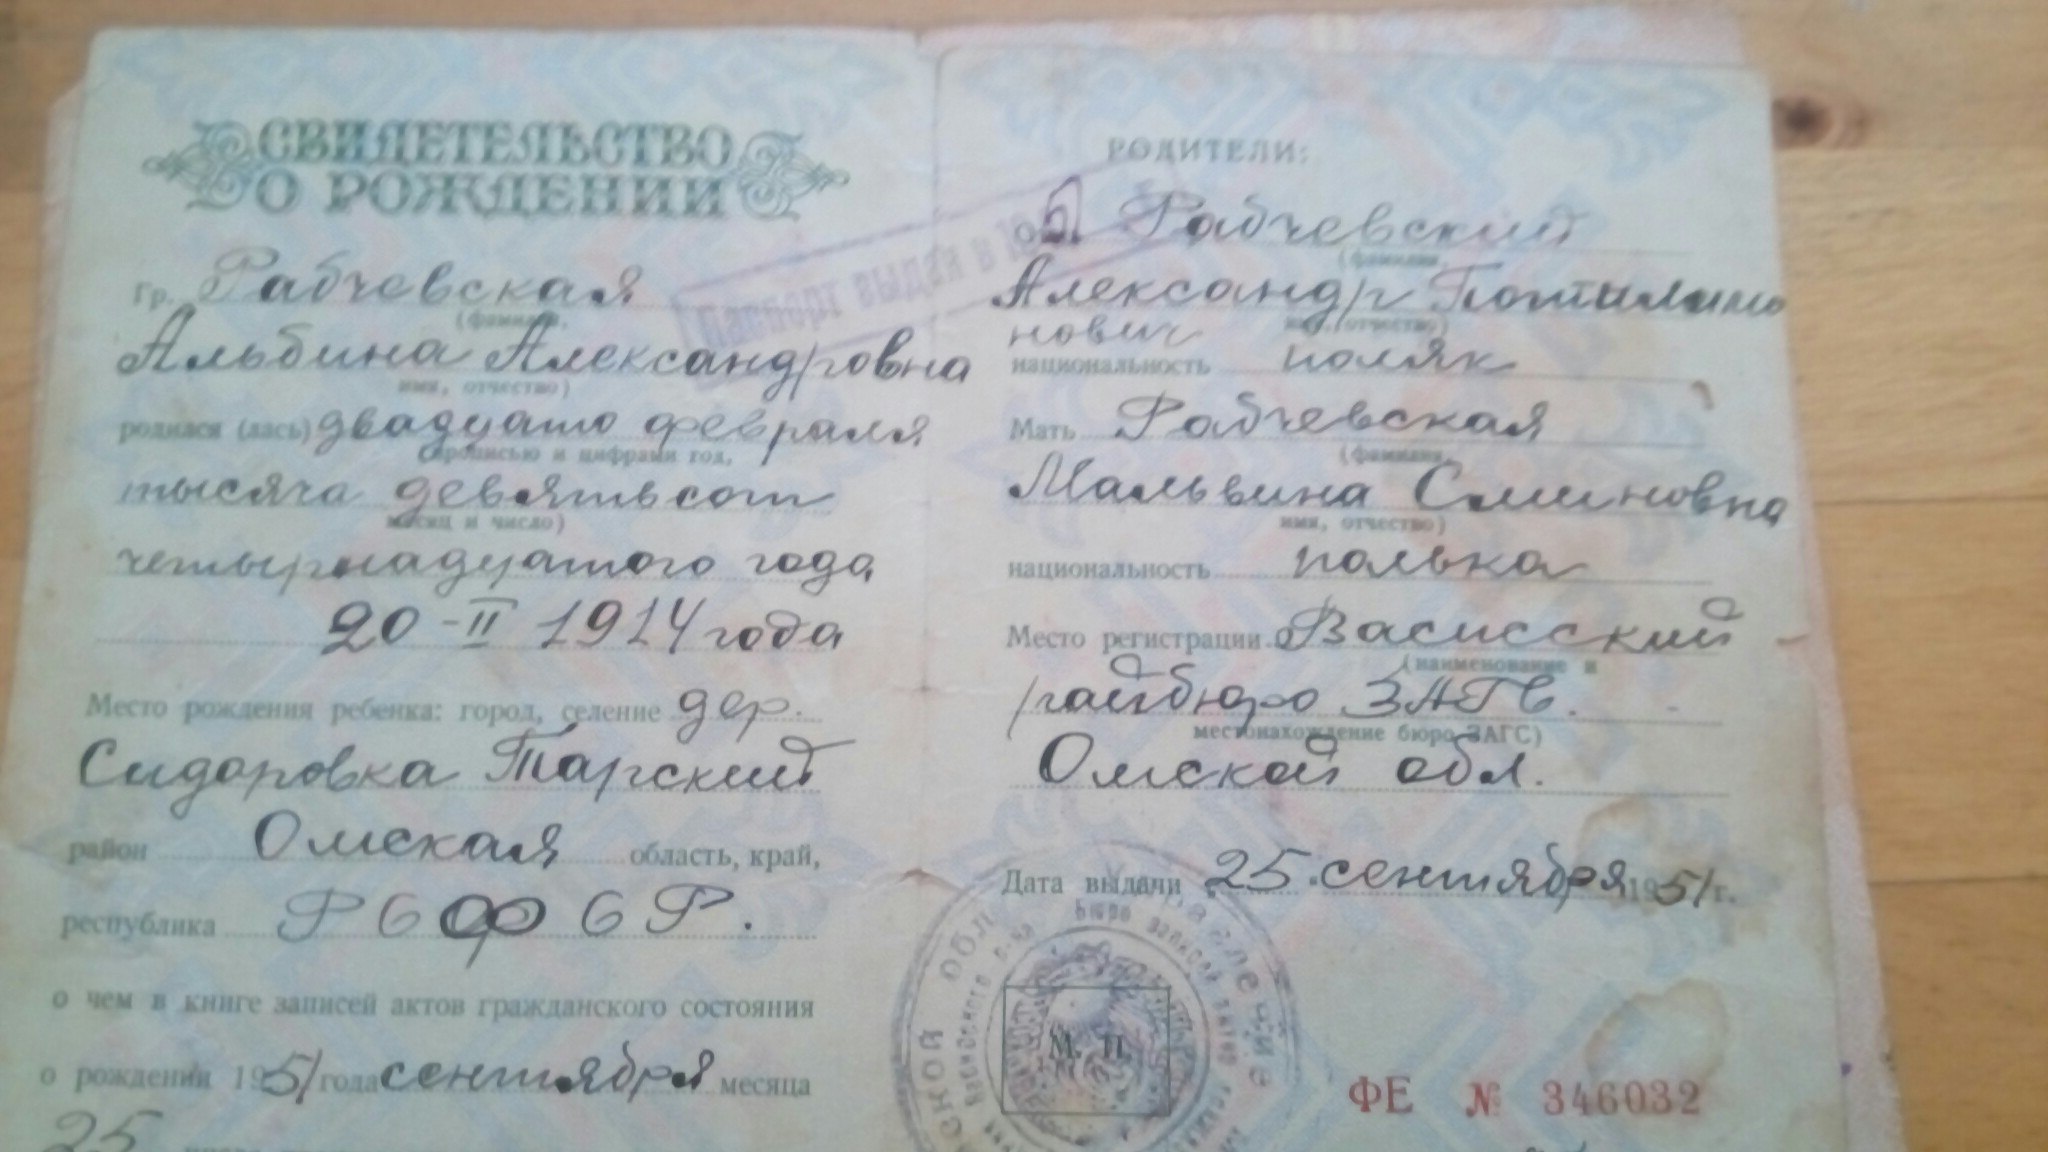 СВИДЕТЕЛЬСТВО
О РОЖДЕНИИ
Гр. Рабчевская
(фамилия,
Альбина Александровна
имя, отчество)
родился (лась) двадцато февраля
(прописью и цифрами год,
тысяча девятьсот
месяц и число)
четырнадцатого года
20 - II 1914 года
Место рождения ребенка: город, селение дер.
Сидоровка Тарский
район Омская область, край,
республика РСФСР.
о чем в книге записей актов гражданского состояния
о рождении 1951 года сентября месяца
25
Паспорт выдан в
РОДИТЕЛИ:
Рабчевский
(фамилия,
Александр
нович
имя, отчество)
национальность поляк
Мать Рабчевская
(фамилия,
Мальвина
имя, отчество)
национальность полька
Место регистрации Васисский
(наименование и
райбюро ЗАГС.
местонахождение бюро ЗАГС)
Омской обл.
Дата выдачи 25 сентября 1951 г.
М. П.
ФЕ № 346032